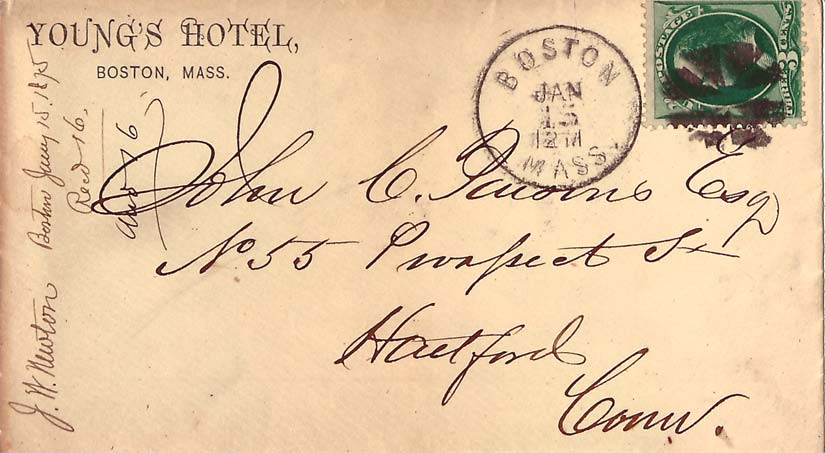 YOUNG'S HOTEL,
BOSTON, MASS.
BOSTON
JAN
15
12 M
MASS.
POSTAGE
CENTS
John C. Parsons Esq
No 55 Prospect St
Hartford
Conn.
J. W. Newton Boston Jany 15 1875
Recd 16.
Ansd 16